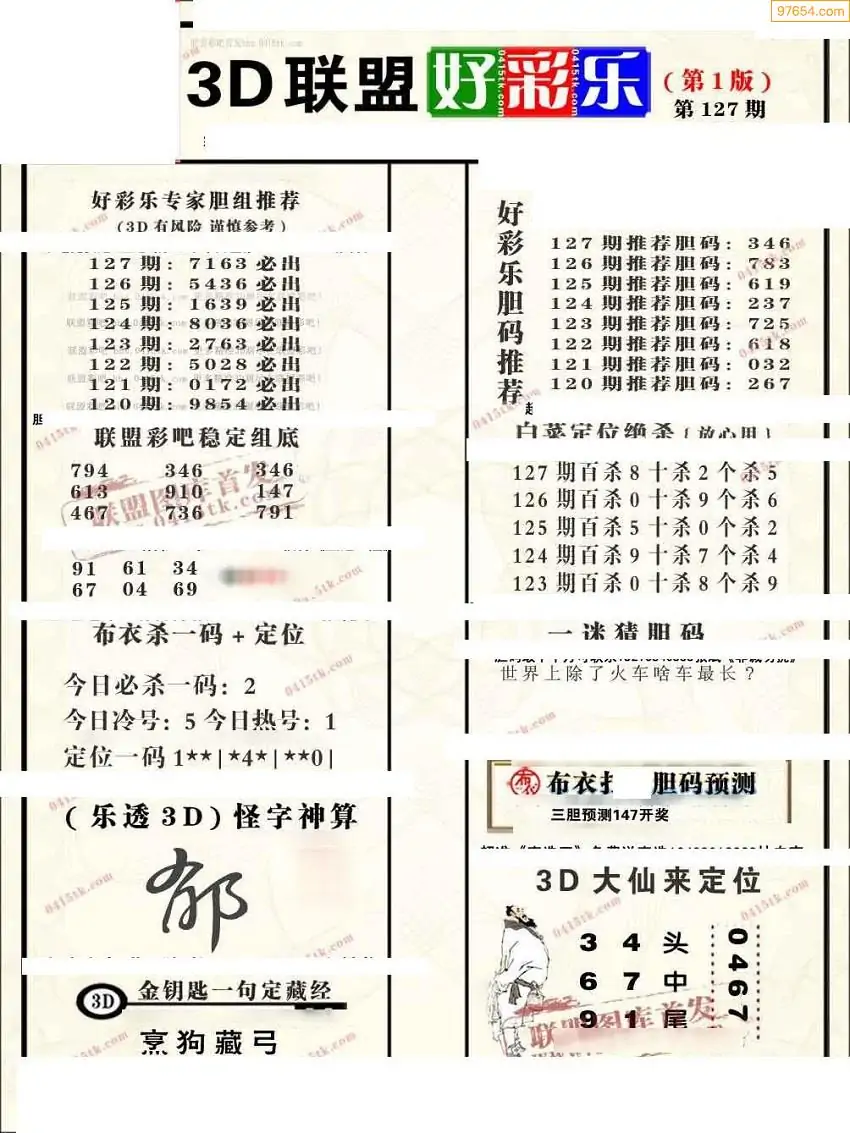 97654.com
3D联盟 好彩乐 (第1版)
第127期
好彩乐专家胆组推荐
(3D有风险 谨慎参考)
127期: 7163必出
126期: 5436必出
125期: 1639必出
124期: 8036必出
123期: 2763必出
122期: 5028必出
121期: 0172必出
120期: 9854必出
胆
联盟彩吧稳定组底
794 346 346
613 910 147
467 736 791
91 61 34
67 04 69
布衣杀一码+定位
今日必杀一码: 2
今日冷号: 5 今日热号: 1
定位一码 1**|*4*|**0|
(乐透3D)怪字神算
郁
3D 金钥匙一句定藏经
烹狗藏弓
好彩乐胆码推荐
127期推荐胆码: 346
126期推荐胆码: 783
125期推荐胆码: 619
124期推荐胆码: 237
123期推荐胆码: 725
122期推荐胆码: 618
121期推荐胆码: 032
120期推荐胆码: 267
白菜定位绝杀(放心用)
127期百杀8十杀2个杀5
126期百杀0十杀9个杀6
125期百杀5十杀0个杀2
124期百杀9十杀7个杀4
123期百杀0十杀8个杀9
一迷猜胆码
世界上除了火车啥车最长?
布衣 胆码预测
三胆预测147开奖
3D大仙来定位
3 4 头
6 7 中
9 1 尾
0467
联盟图库首发
0415tk.com